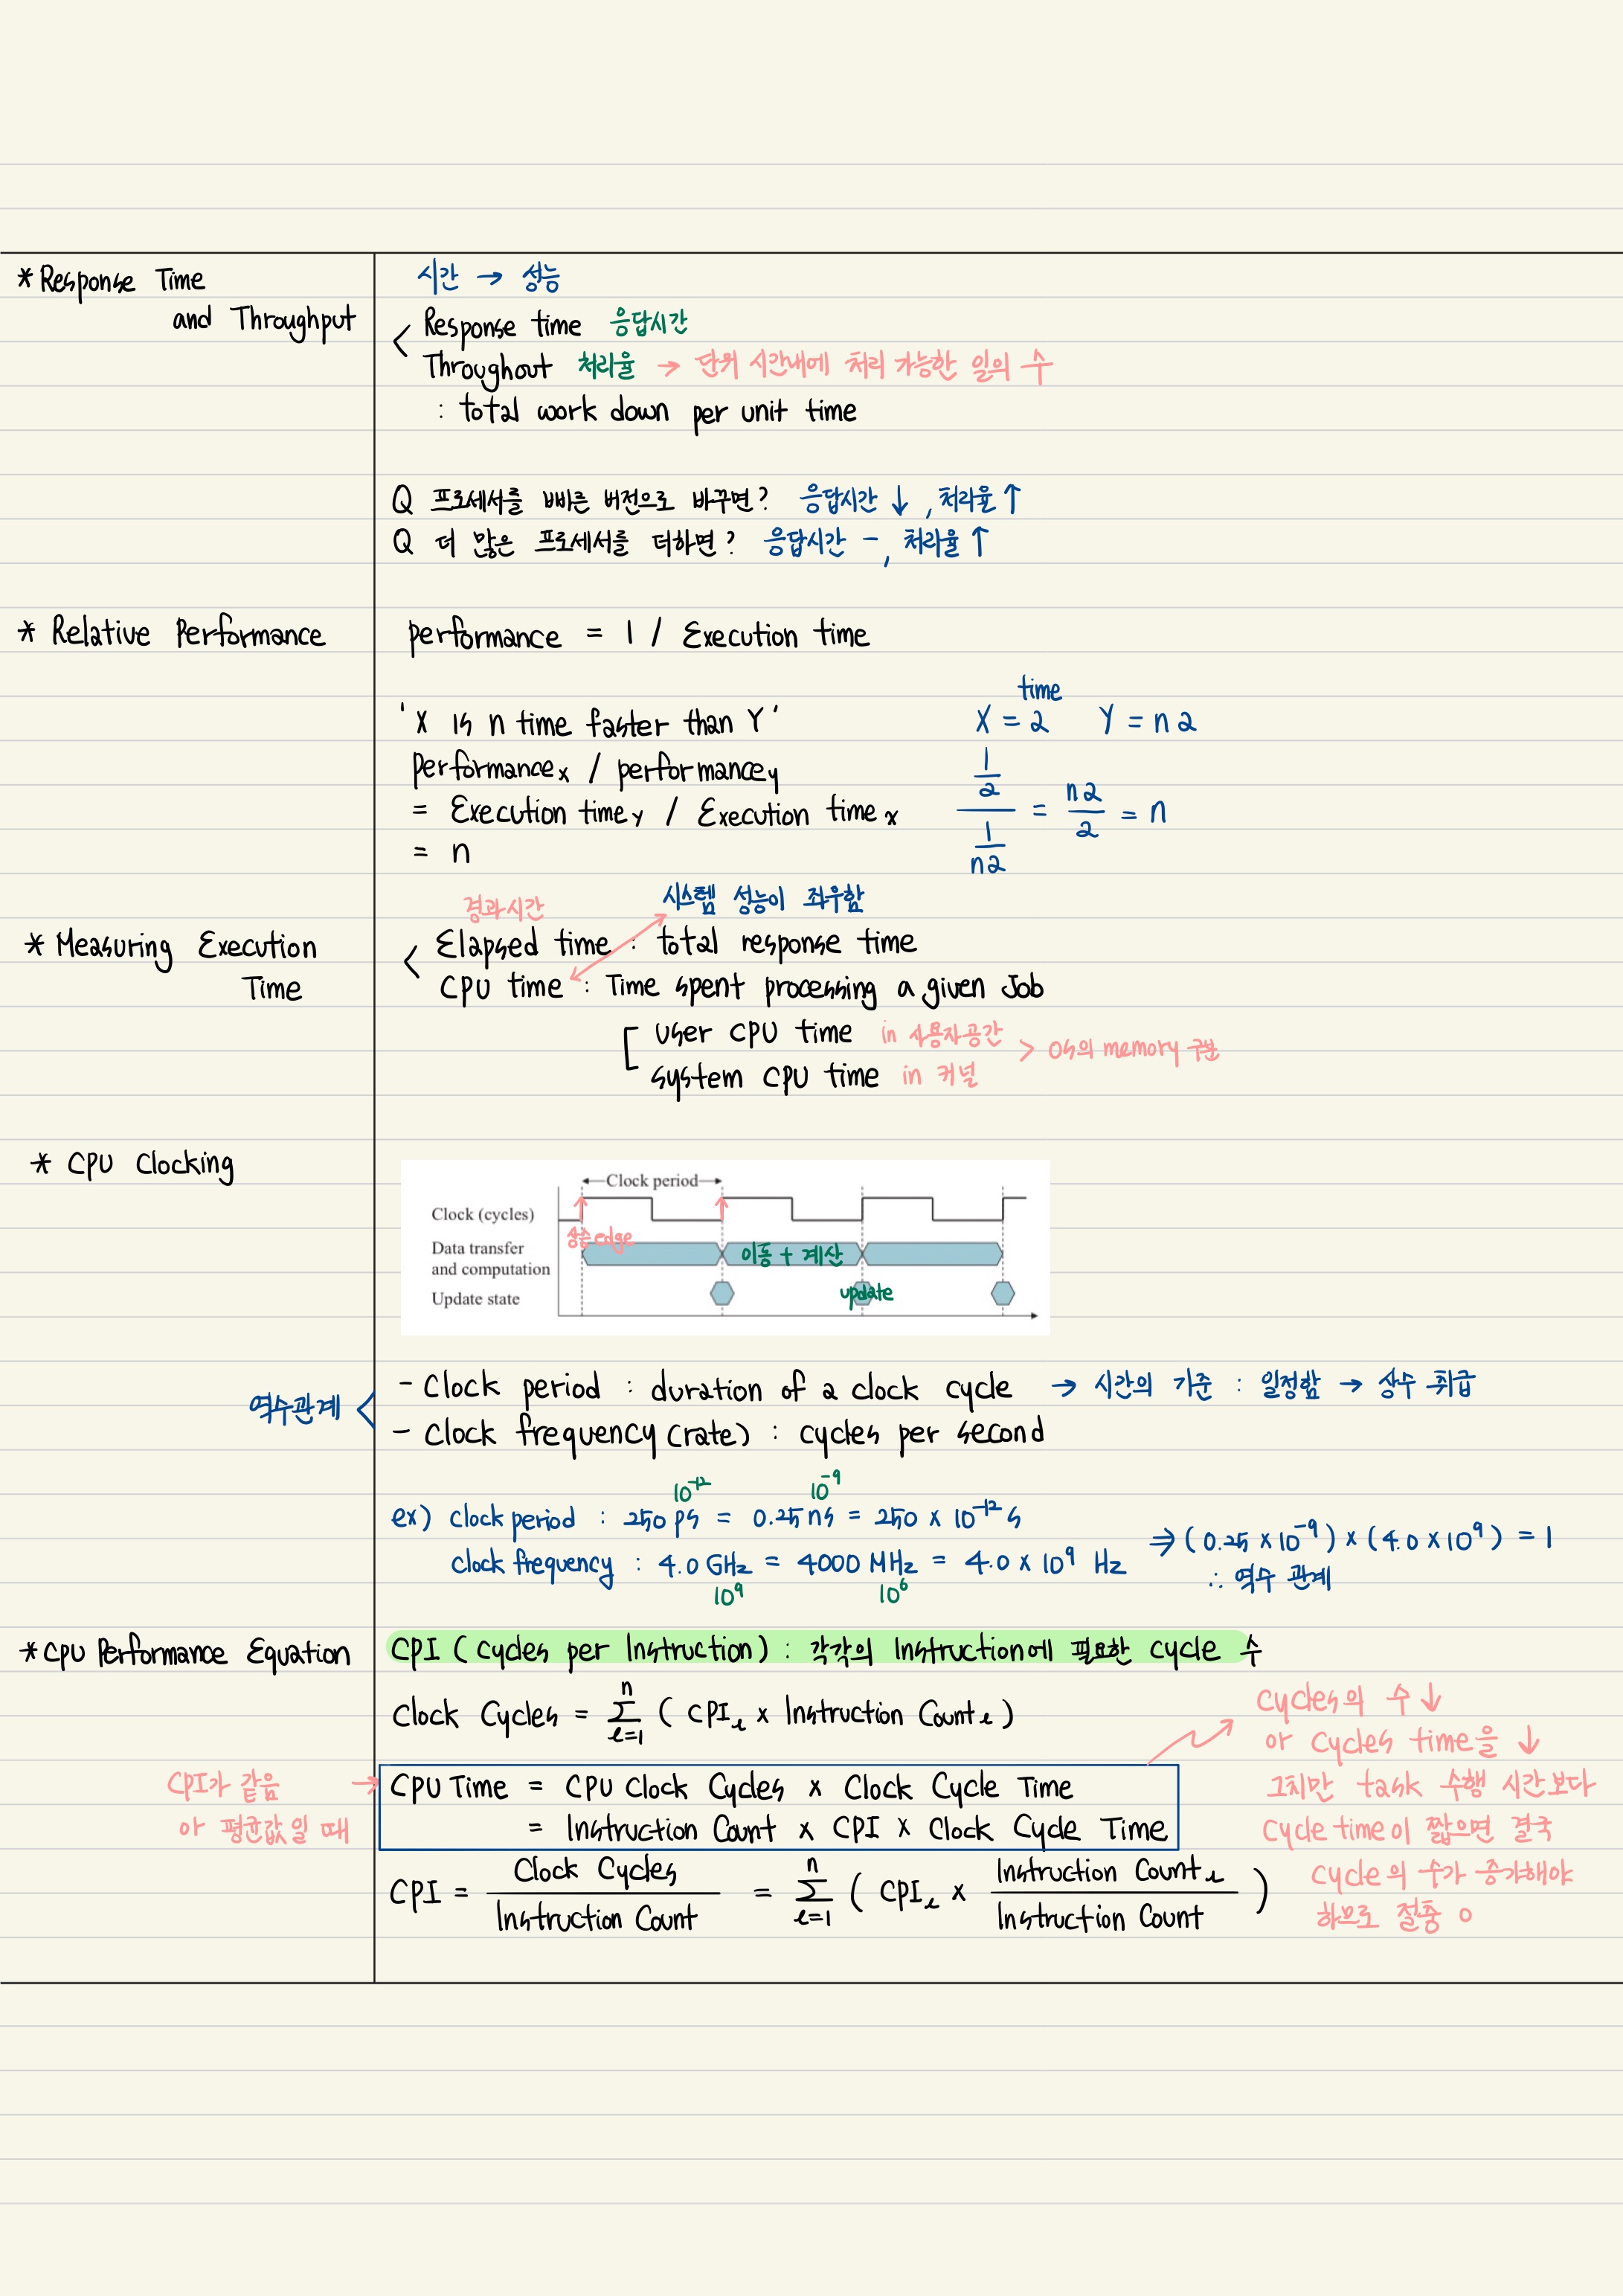 * Response Time
and Throughput
시간 → 성능
Response time 응답시간
Throughout 처리율 → 단위 시간내에 처리 가능한 일의 수
: total work down per unit time
Q 프로세서를 빠른 버전으로 바꾸면? 응답시간 ↓, 처리율 ↑
Q 더 많은 프로세서를 더하면? 응답시간 -, 처리율 ↑
* Relative Performance
performance = 1 / Execution time
'X is n time faster than Y'
performance x / performance y
= Execution time y / Execution time x
= n
time
X = 2 Y = n2
1/2 / 1/n2 = n2/2 = n
* Measuring Execution
Time
경과시간
시스템 성능이 좌우함
Elapsed time : total response time
CPU time : Time spent processing a given Job
user CPU time in 사용자공간
system CPU time in 커널
> OS의 memory 구분
* CPU Clocking
Clock period
Clock (cycles)
상승 edge
Data transfer
and computation
이동 + 계산
Update state
update
역수관계 <
- Clock period : duration of a clock cycle → 시간의 기준 : 일정함 → 상수 취급
- Clock frequency (rate) : cycles per second
10^-12 10^-9
ex) clock period : 250 ps = 0.25 ns = 250 × 10^-12 s
clock frequency : 4.0 GHz = 4000 MHz = 4.0 × 10^9 Hz
10^9 10^6
⇒ (0.25 × 10^-9) × (4.0 × 10^9) = 1
∴ 역수 관계
* CPU Performance Equation
CPI (cycles per Instruction) : 각각의 Instruction에 필요한 cycle 수
Clock Cycles = n Σ i=1 ( CPI i × Instruction Count i )
CPI가 같음 →
or 평균값일 때
CPU Time = CPU Clock Cycles × Clock Cycle Time
= Instruction Count × CPI × Clock Cycle Time
CPI = Clock Cycles / Instruction Count = n Σ i=1 ( CPI i × Instruction Count i / Instruction Count )
cycles의 수 ↓
or cycles time을 ↓
그치만 task 수행 시간보다
cycle time이 짧으면 결국
cycle의 수가 증가해야
하므로 절충 o